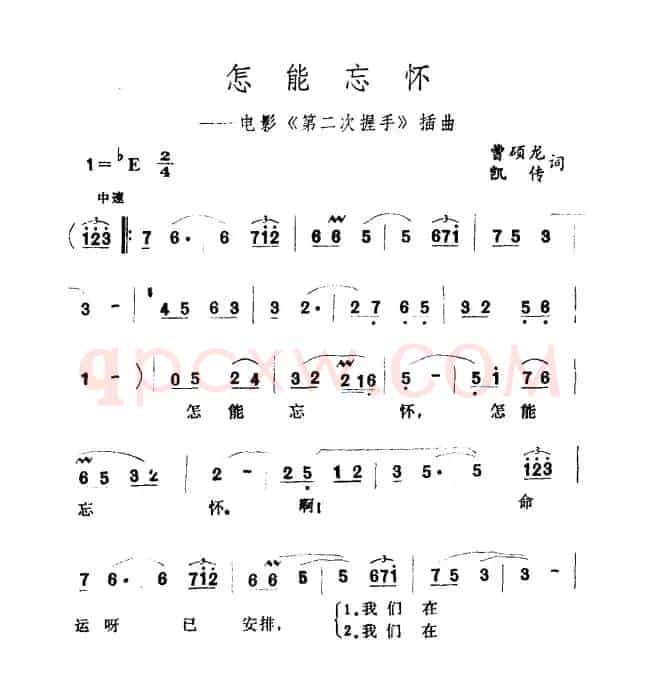 怎能忘怀
——电影《第二次握手》插曲
1=♭E 2/4
曹硕龙
凯传 词
中速
(123 ‖: 7 6· 6 712 | 66 5 | 5 671 | 75 3 |
3 - | 45 63 | 3 2· | 27 65 | 32 56 |
1 - ) | 05 24 | 32 216 | 5 - | 51 76 |
怎能 忘 怀, 怎能
65 32 | 2 - | 25 12 | 35· 5 123 |
忘 怀。 啊! 命
7 6· 6 712 | 66 5 | 5 671 | 75 3 | 3 - |
运呀 已 安排, 1.我们 在
2.我们 在
qpcxw.COM